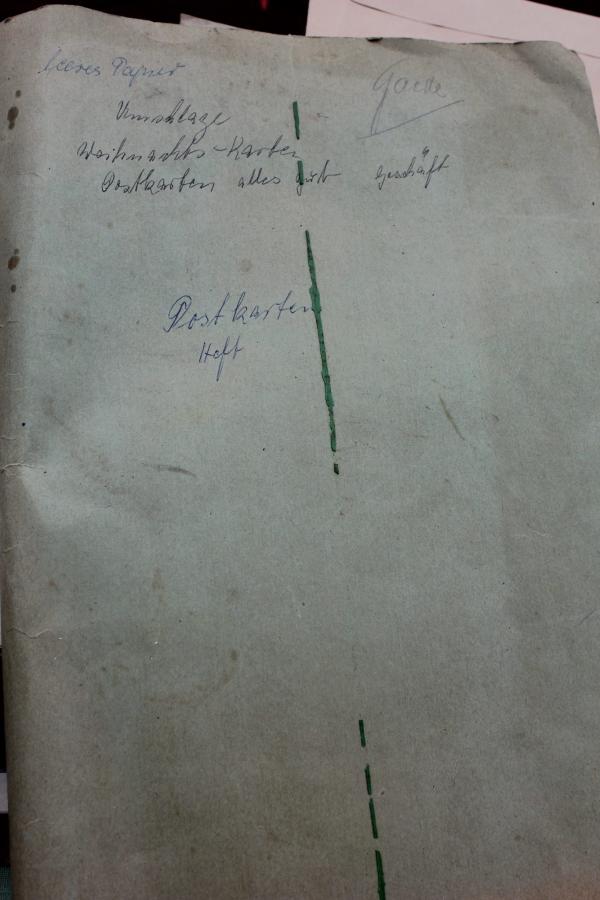 leeres Papier
Umschläge
Weihnachts-Karten
Postkarten alles gut geschäft
Postkarten
Heft